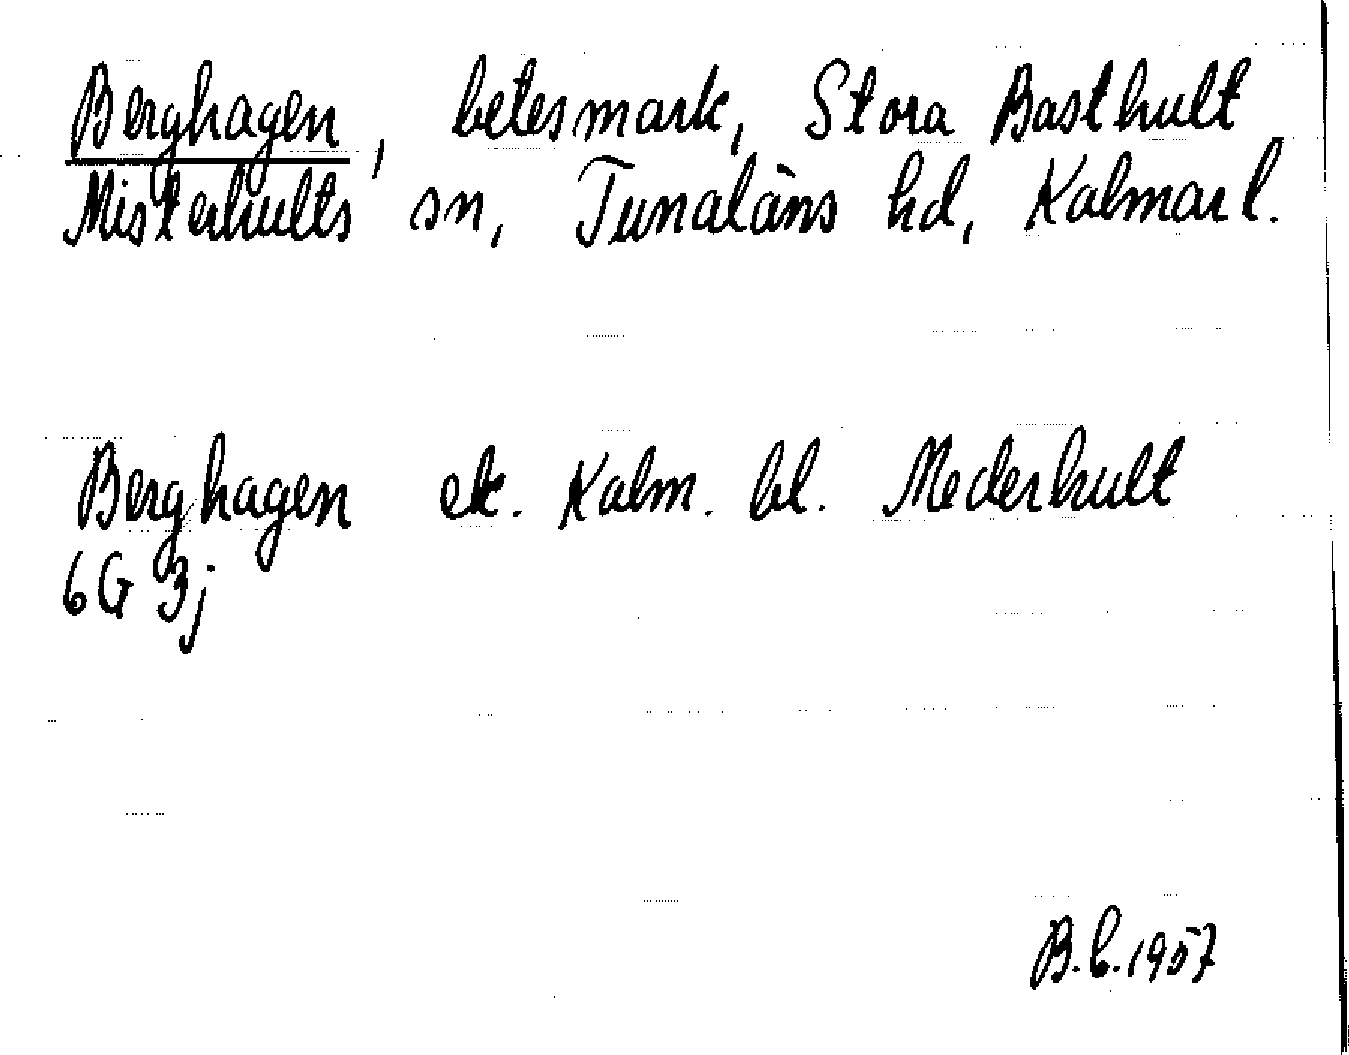 Berghagen, betesmark, Stora Basthult
Misterhults sn, Tunaläns hd, Kalmar l.
Berghagen ek. Kalm. bl. Mederhult
6G 3j
B.C. 1957